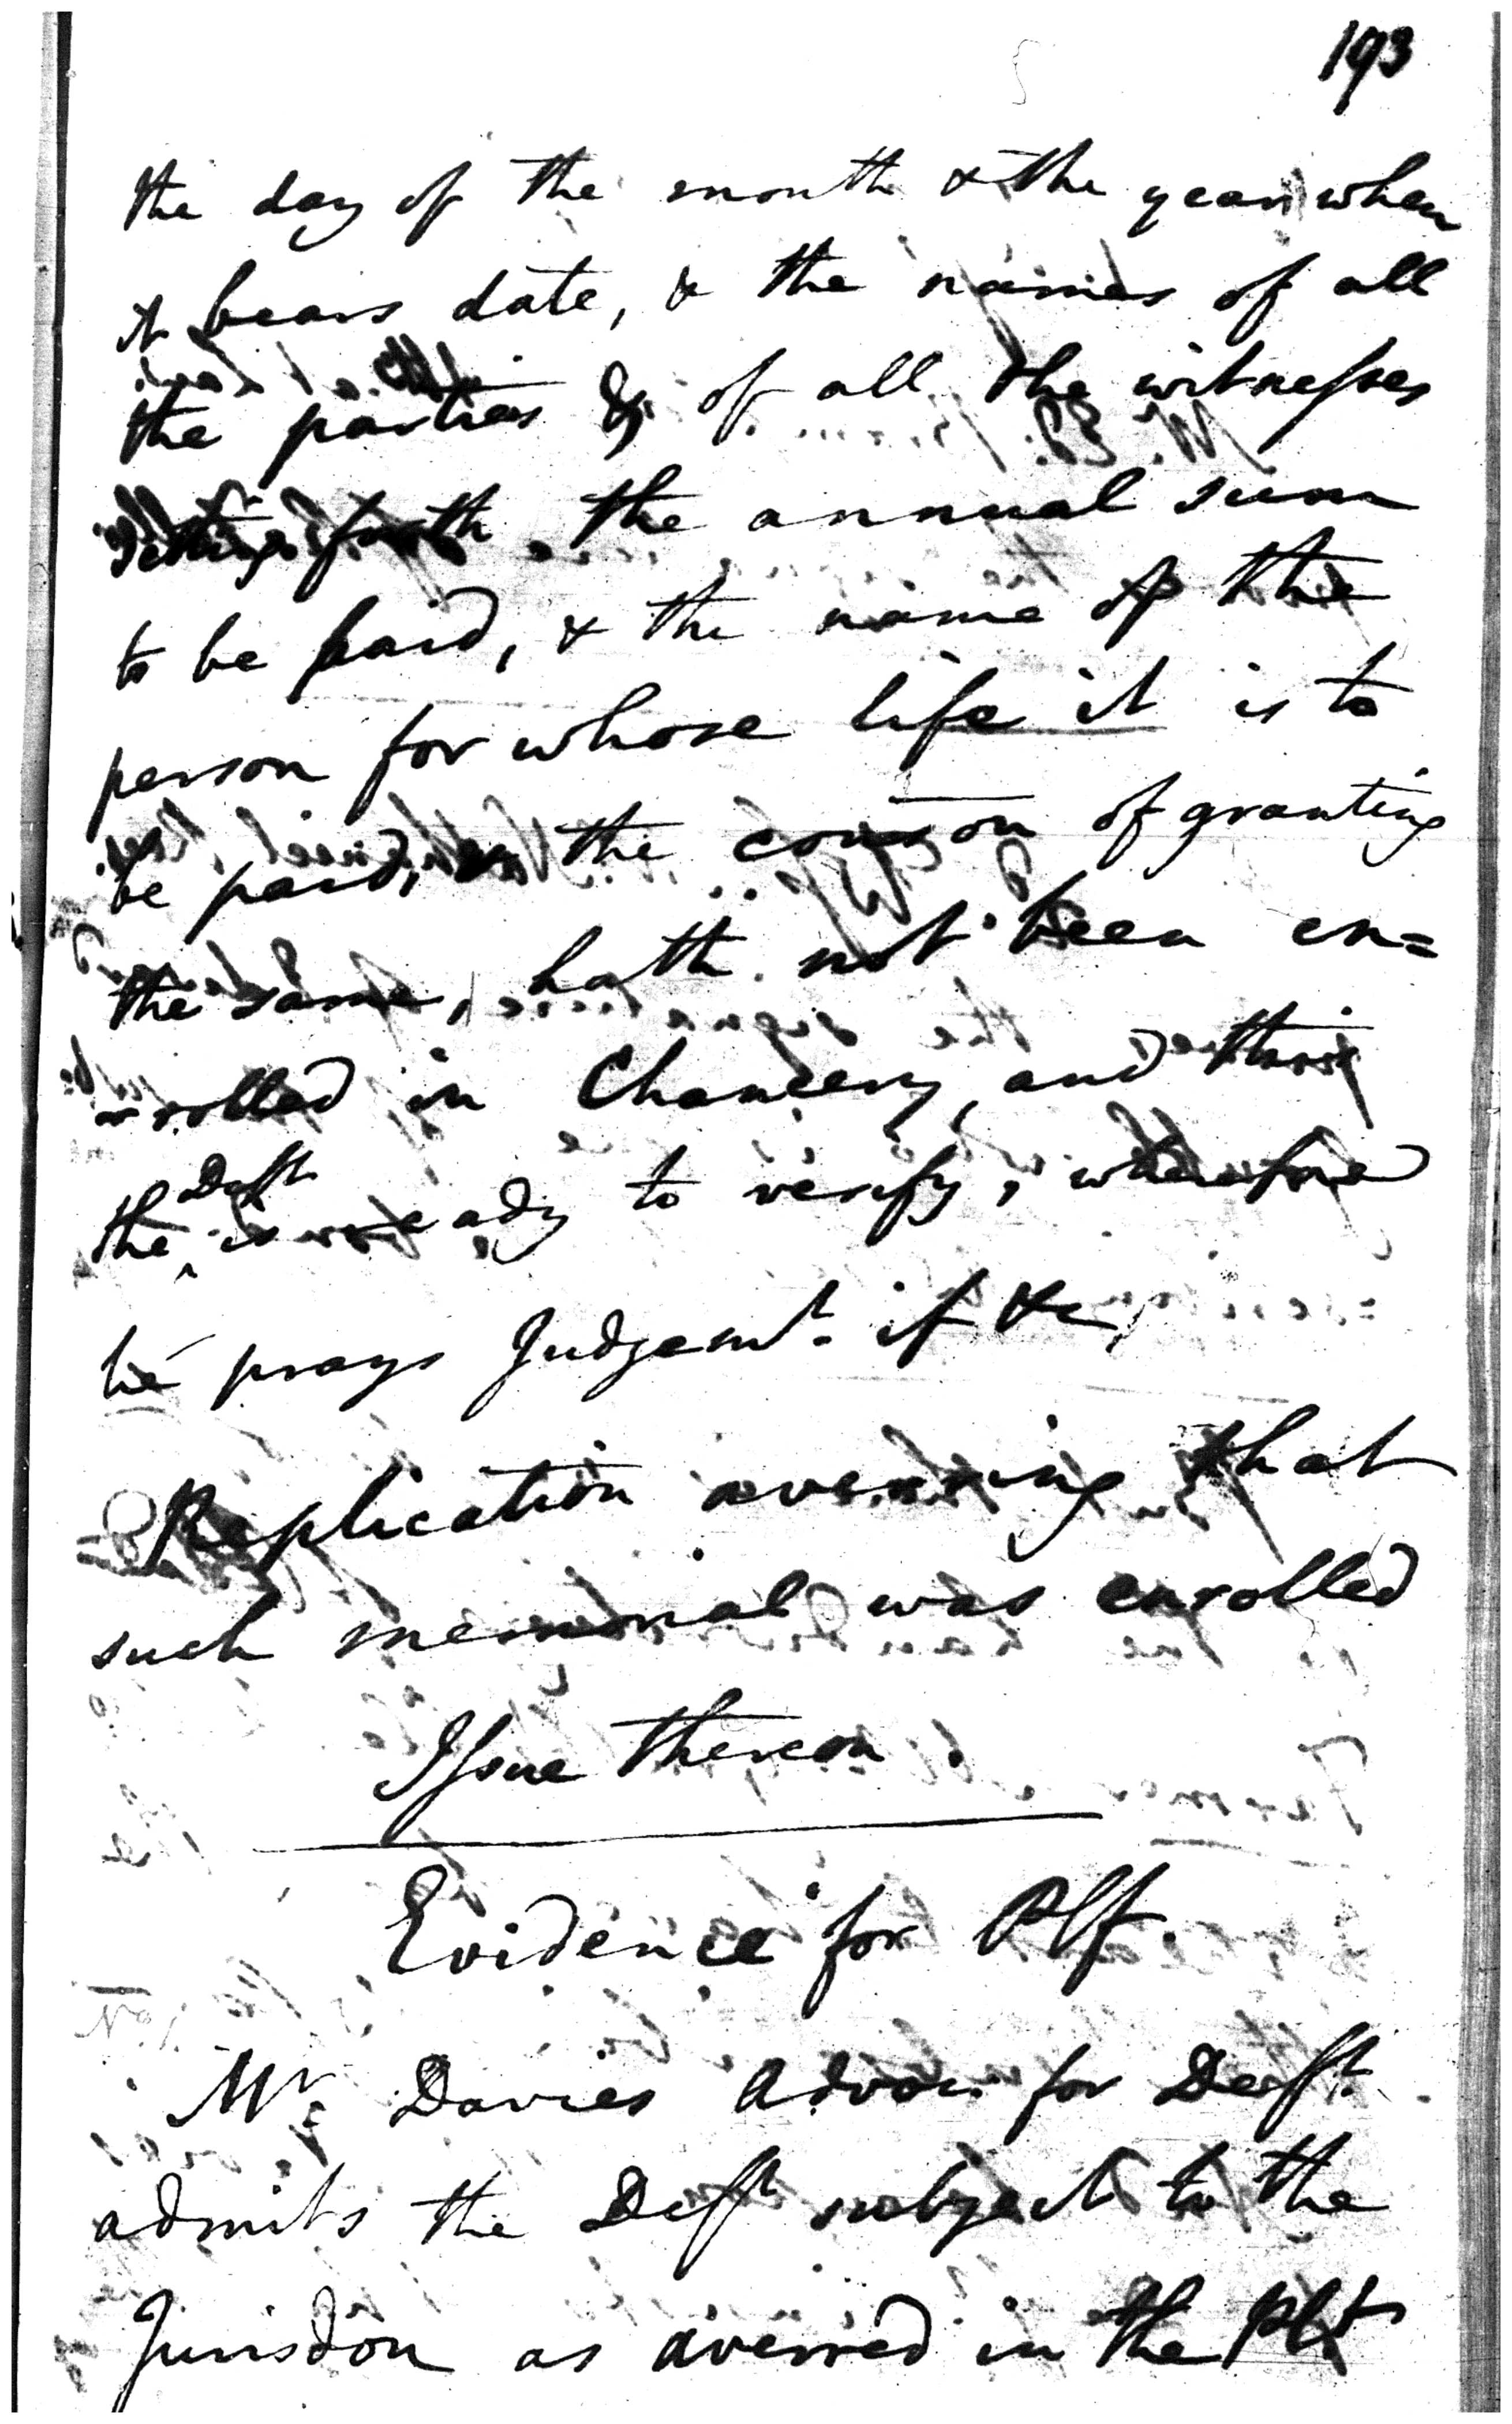 193
the day of the month & the year when
it bears date, & the names of all
the parties & of all the witnesses
setting forth the annual sum
to be paid, & the name of the
person for whose life it is to
be paid, & the conson of granting
the same, hath not been en=
=rolled in Chancery, and this
the Deft is ready to verify, wherefore
he prays Judgemt. if &c
Replication averring that
such memorial was enrolled
Issue thereon.
Evidence for Plf.
Mr. Davies Advou. for Deft.
admits the Deft subject to the
Jurisdon as averred in the Plt